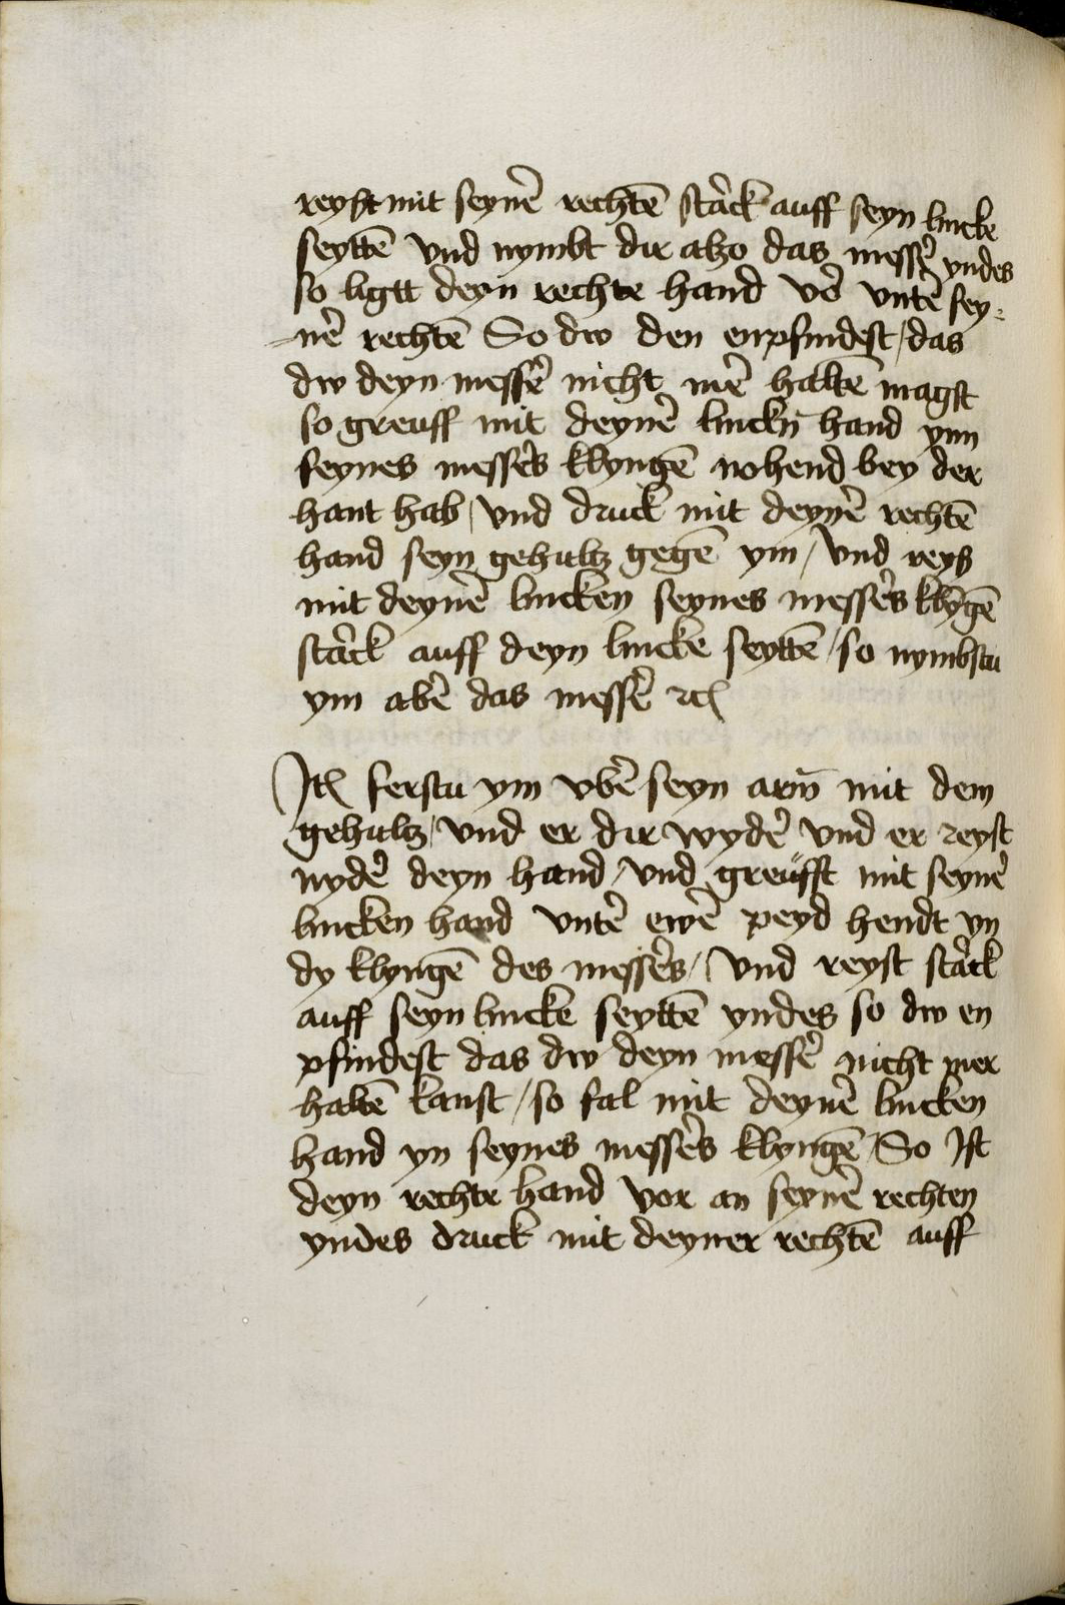 reyst mit seynē rechtē starck auff seyn lincke
seyttē vnd nymbt dir also das messer yndes
so ligtt deyn rechte hand vor vnter sey-
-ner rechtē So dw den enpfindest / das
dw deyn messer nicht mer haltē magst
so greuff mit deyner linckn̄ hand ynn
seynes messers klyngē nohend bey der
hant hab / vnd druck mit deyner rechtē
hand seyn gehultz gegē ym / vnd reyß
mit deyner lincken seynes messers klȳgē
starck auff deyn lincke seyttē / so nymbstu
ym aber das messer etc
Itē ferstu ym vber seyn arm̄ mit dem
gehultz / vnd er dir wyder vnd er reyst
nyder deyn hand / vnd greüfft mit seyner
lincken hand vnter ewer peyd hendt yn
dy klyngē des messers / vnd reyst starck
auff seyn lincke seyttē yndes so dw en
pfindest das dw deyn messer nicht mer
haltē kanst / so fal mit deyner lincken
hand yn seynes messers klyngē / So Ist
deyn rechte hand vor an seyner rechten
yndes druck mit deyner rechtē auff